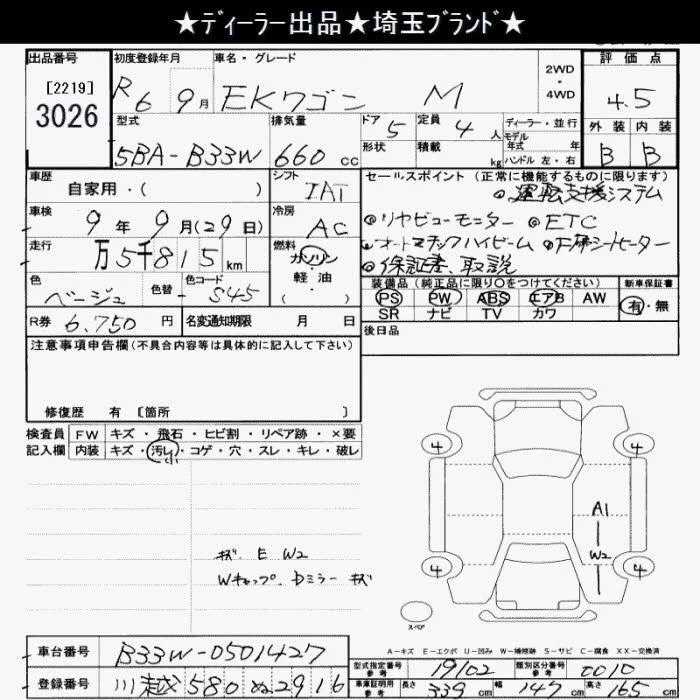 ★ディーラー出品★埼玉ブランド★
出品番号 初度登録年月 車名・グレード 2WD・4WD 評価点
[2219]
3026
R6 9月 EKワゴン M 4.5
型式 排気量 ドア 定員 ディーラー・並行 外装 内装
5BA-B33W 660cc 5 4人 モデル年式 年 B B
形状 積載 kg ハンドル 左・右
車歴 シフト セールスポイント (正常に機能するものに限ります)
自家用・( ) IAT ◎運転支援システム
車検 冷房 ◎リヤビューモニター ◎ETC
9年9月(29日) AC
走行 燃料 ◎オートマチックハイビーム ◎F席シートヒーター
万5千815km ガソリン ◎保証書、取説
軽・油 ( )
色 色替 色コード 装備品(純正品に限り○をつけてください) 新車保証書
ベージュ S45 PS PW ABS エアB AW 有・無
SR ナビ TV カワ
R券 6,750円 名変通知期限 月 日 後日品
注意事項申告欄(不具合内容等は具体的に記入して下さい)
修復歴 有 [箇所 ]
検査員 FW キズ・飛石・ヒビ割・リペア跡・×要
記入欄 内装 キズ・汚レ・コゲ・穴・スレ・キレ・破レ
小
4 4
A1
W2
4 4
キズ、E W2
Wキャップ、Dミラー キズ
スペア
A-キズ E-エクボ U-凹み W-補修跡 S-サビ C-腐食 XX-交換済
車台番号 B33W-0501427
型式指定番号 参考 19102 類別区分番号 参考 0010
登録番号 川越 580 ぬ 2916
車庫証明用 参考 長さ 339cm 幅 147cm 高さ 165cm